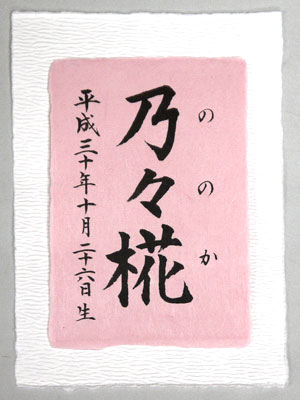 乃々椛
ののか
平成三十年十月二十六日生